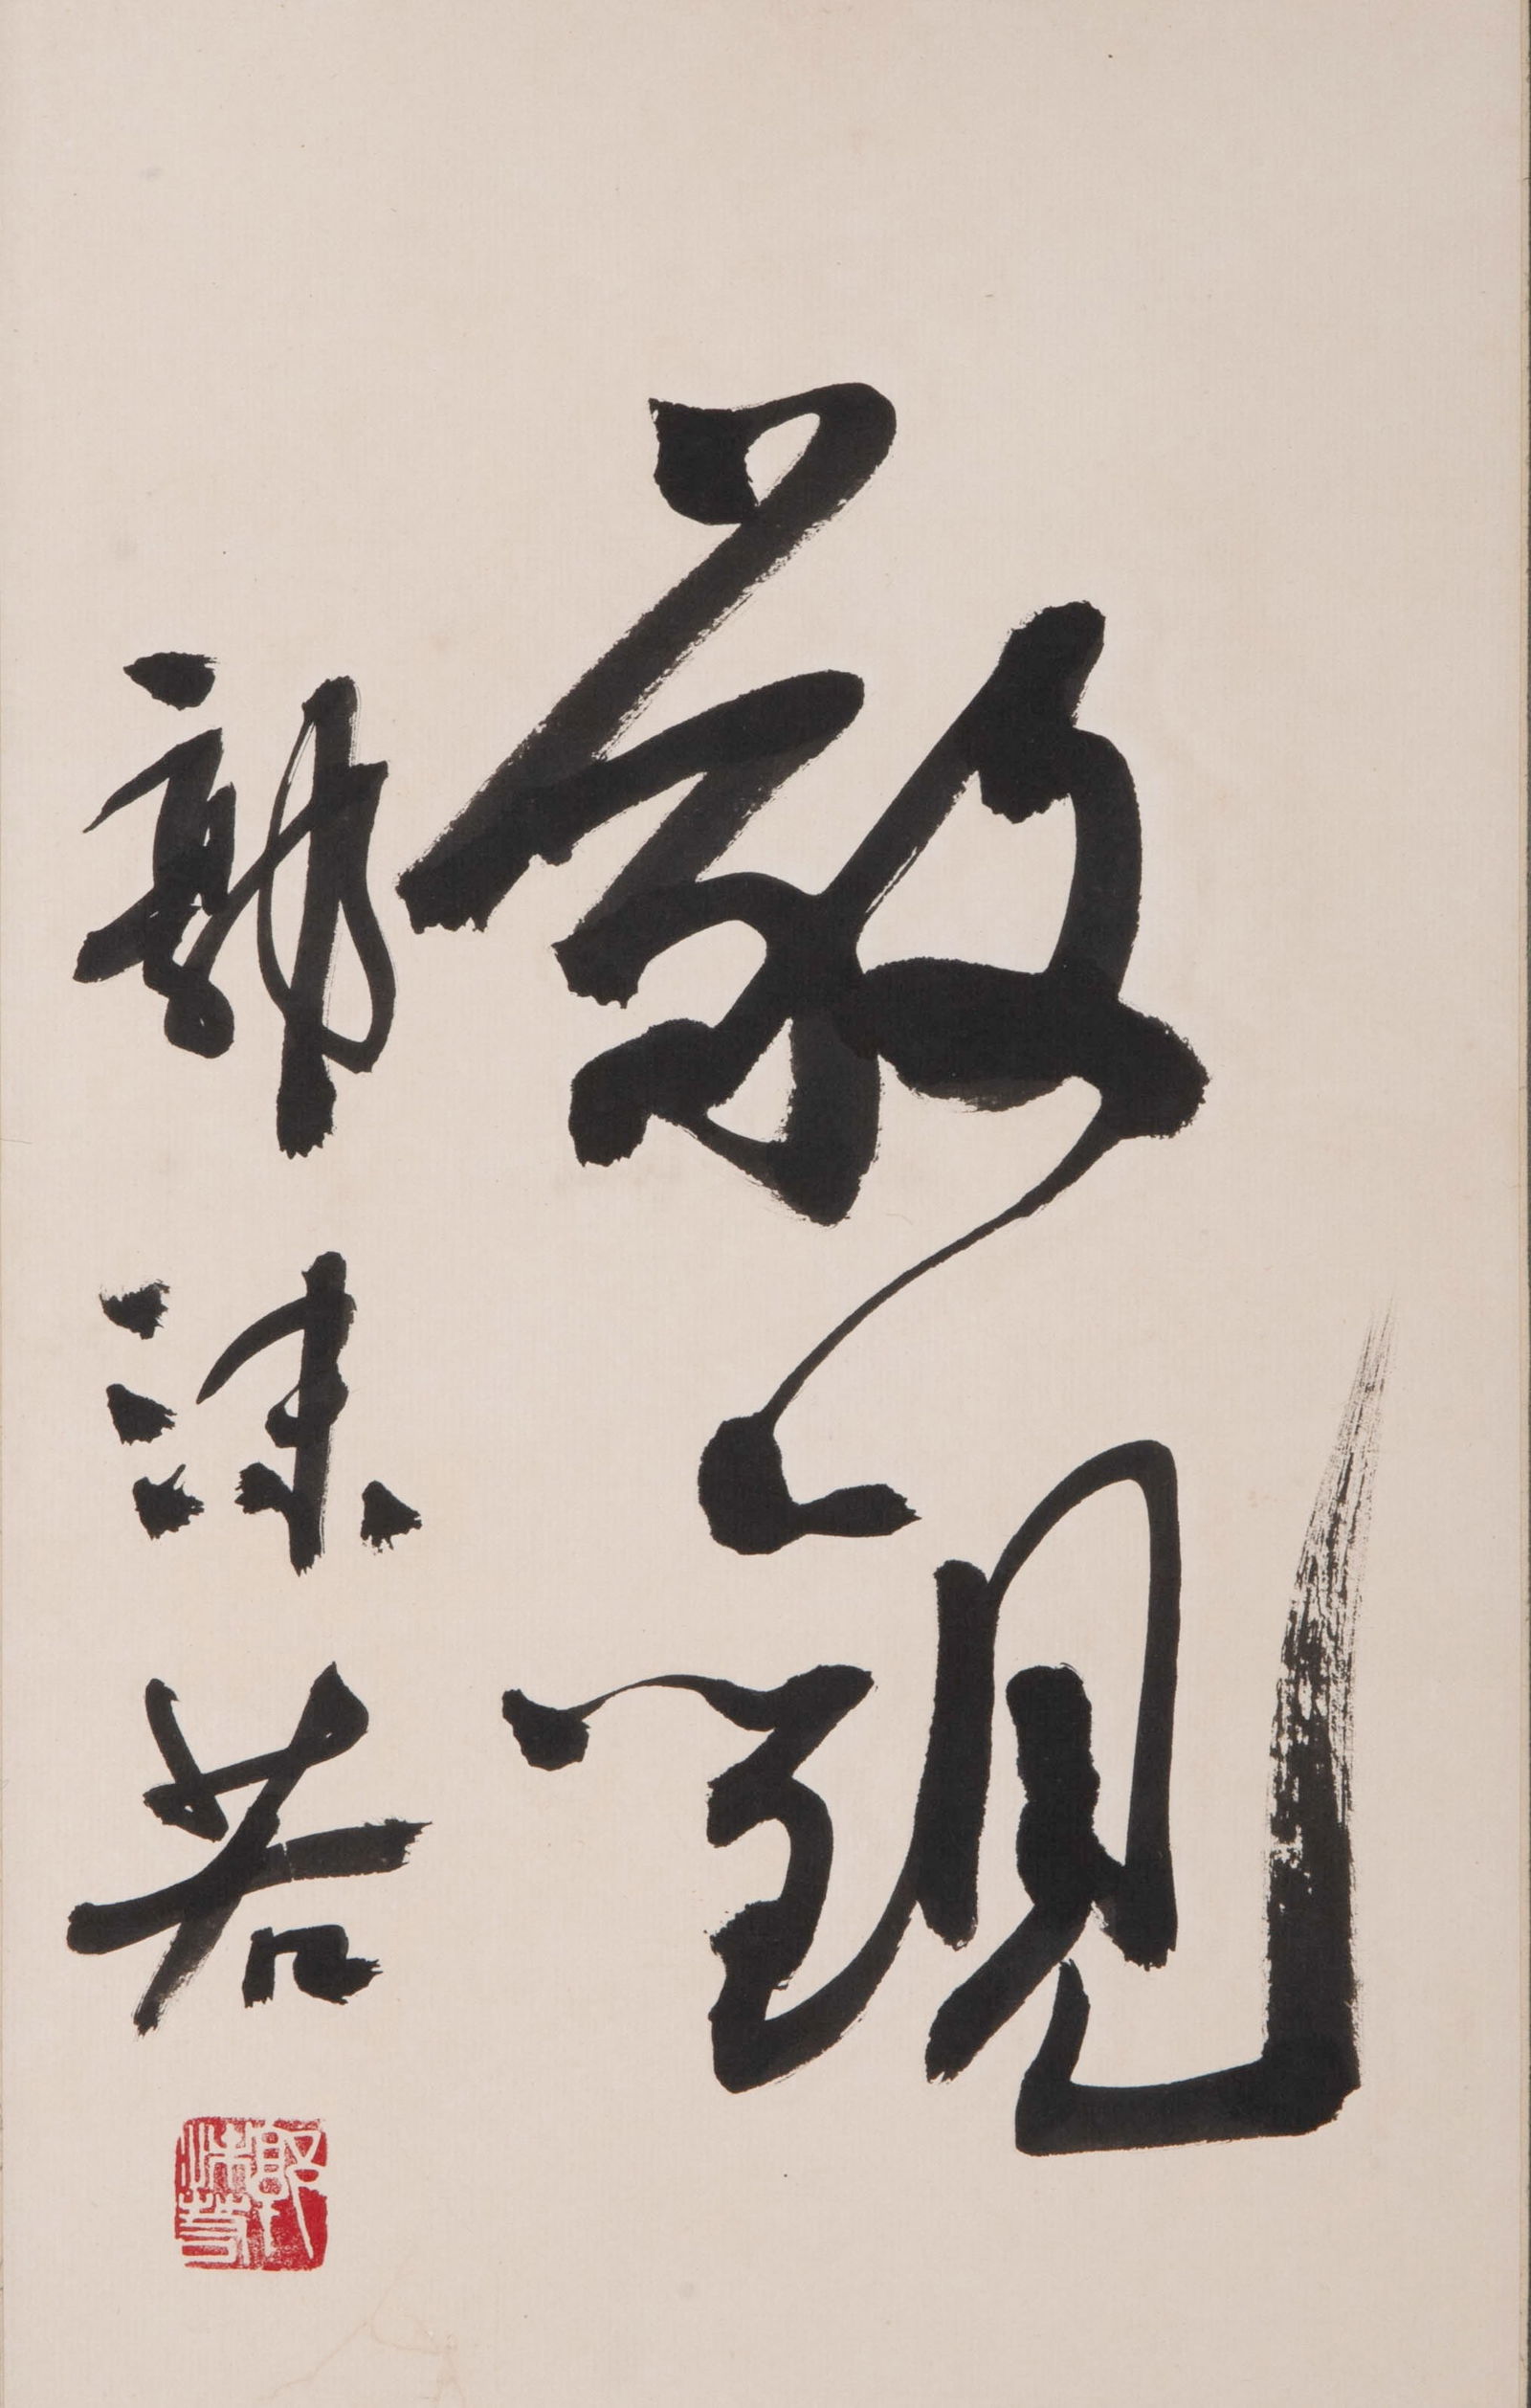 敬觀
郭沫若
郭沫若